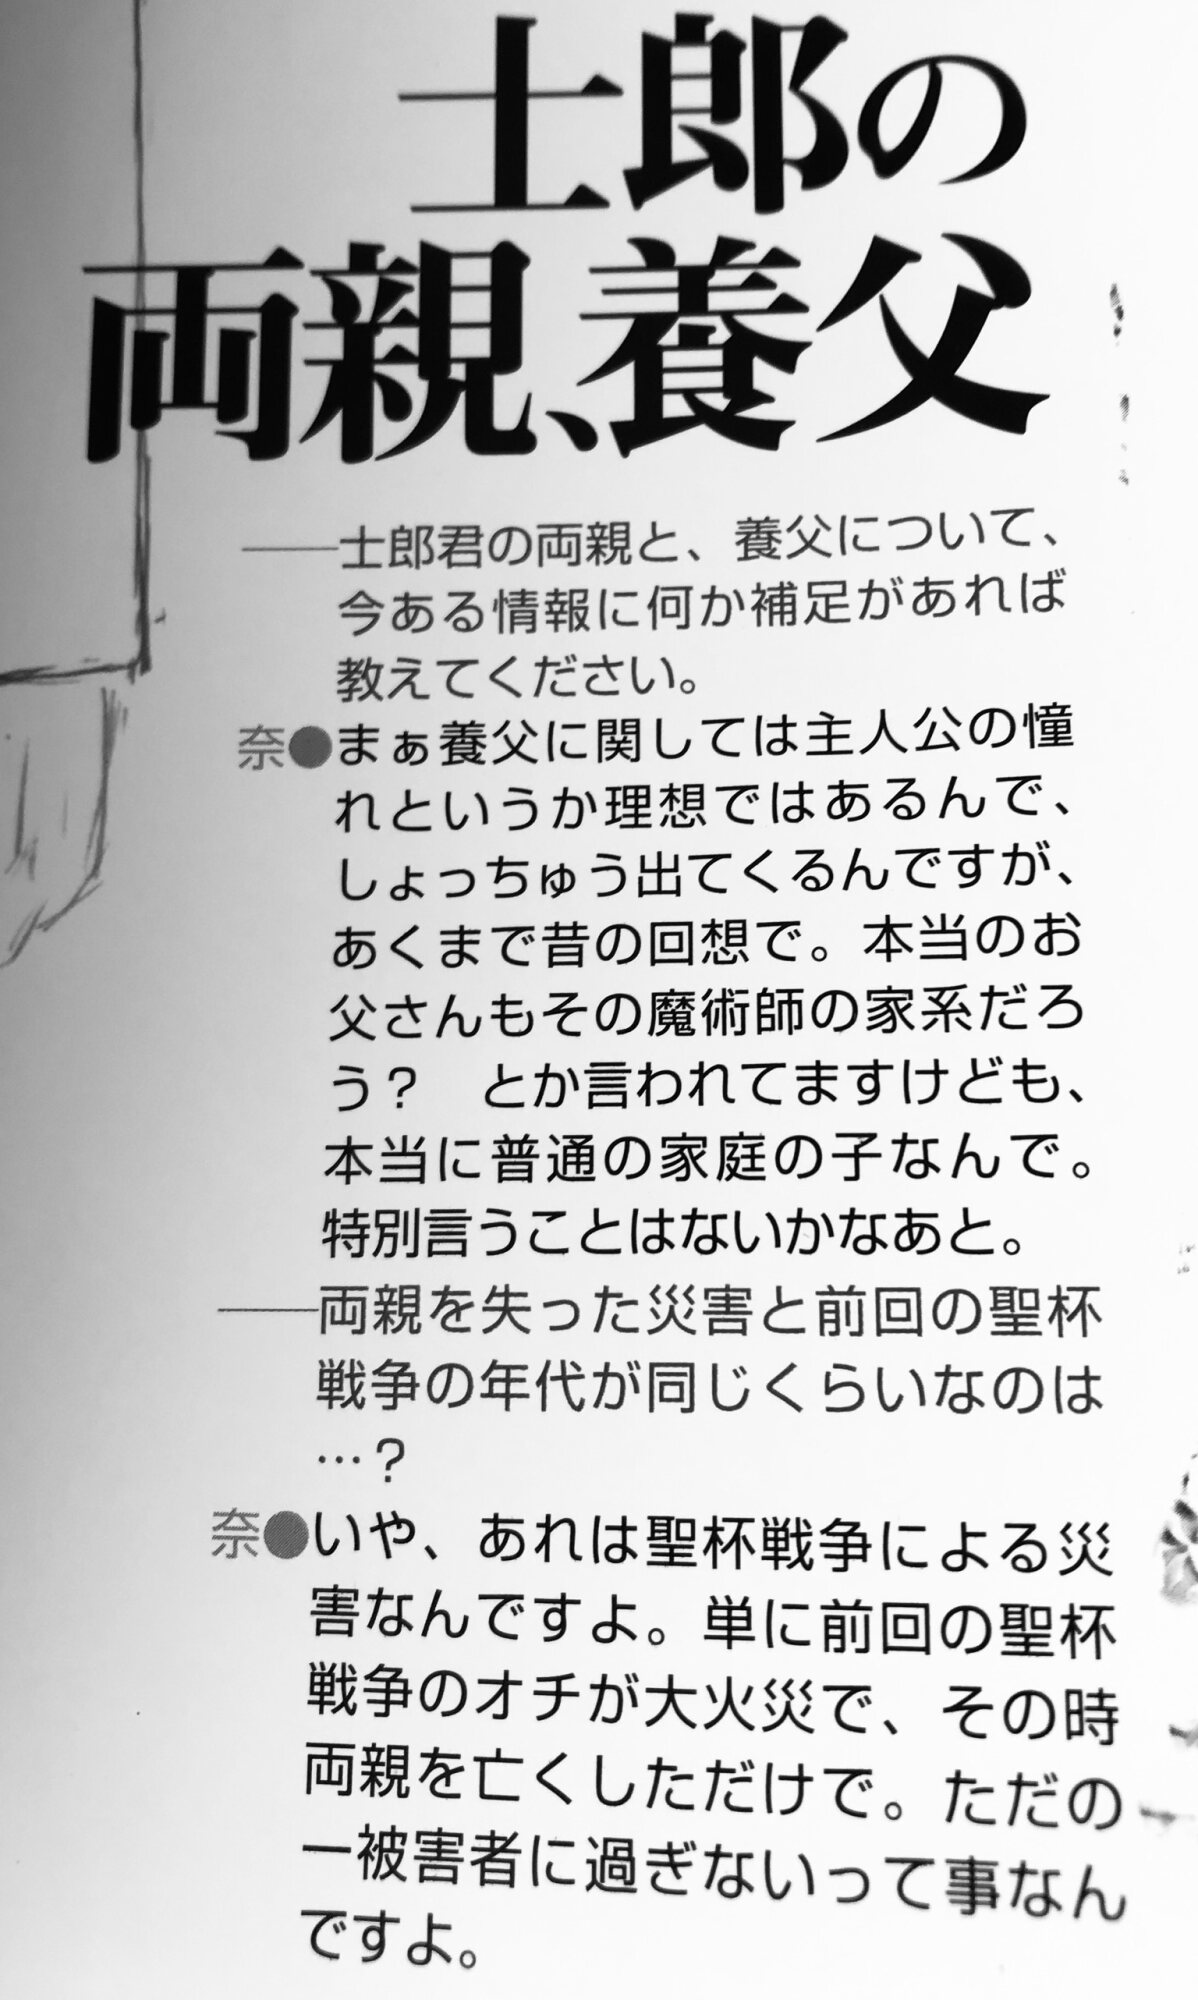 士郎の
両親、養父
──士郎君の両親と、養父について、
今ある情報に何か補足があれば
教えてください。
奈●まぁ養父に関しては主人公の憧
れというか理想ではあるんで、
しょっちゅう出てくるんですが、
あくまで昔の回想で。本当のお
父さんもその魔術師の家系だろ
う？　とか言われてますけども、
本当に普通の家庭の子なんで。
特別言うことはないかなあと。
──両親を失った災害と前回の聖杯
戦争の年代が同じくらいなのは
…？
奈●いや、あれは聖杯戦争による災
害なんですよ。単に前回の聖杯
戦争のオチが大火災で、その時
両親を亡くしただけで。ただの
一被害者に過ぎないって事なん
ですよ。